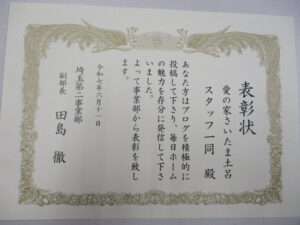 表彰状
愛の家さいたま土呂
スタッフ一同 殿
あなた方はブログを積極的に
投稿して下さり、毎日ホーム
の魅力を存分に発信して下さ
いました。
よって事業部から表彰を致し
ます。
令和七年六月十一日
埼玉第二事業部
副部長 田島 徹